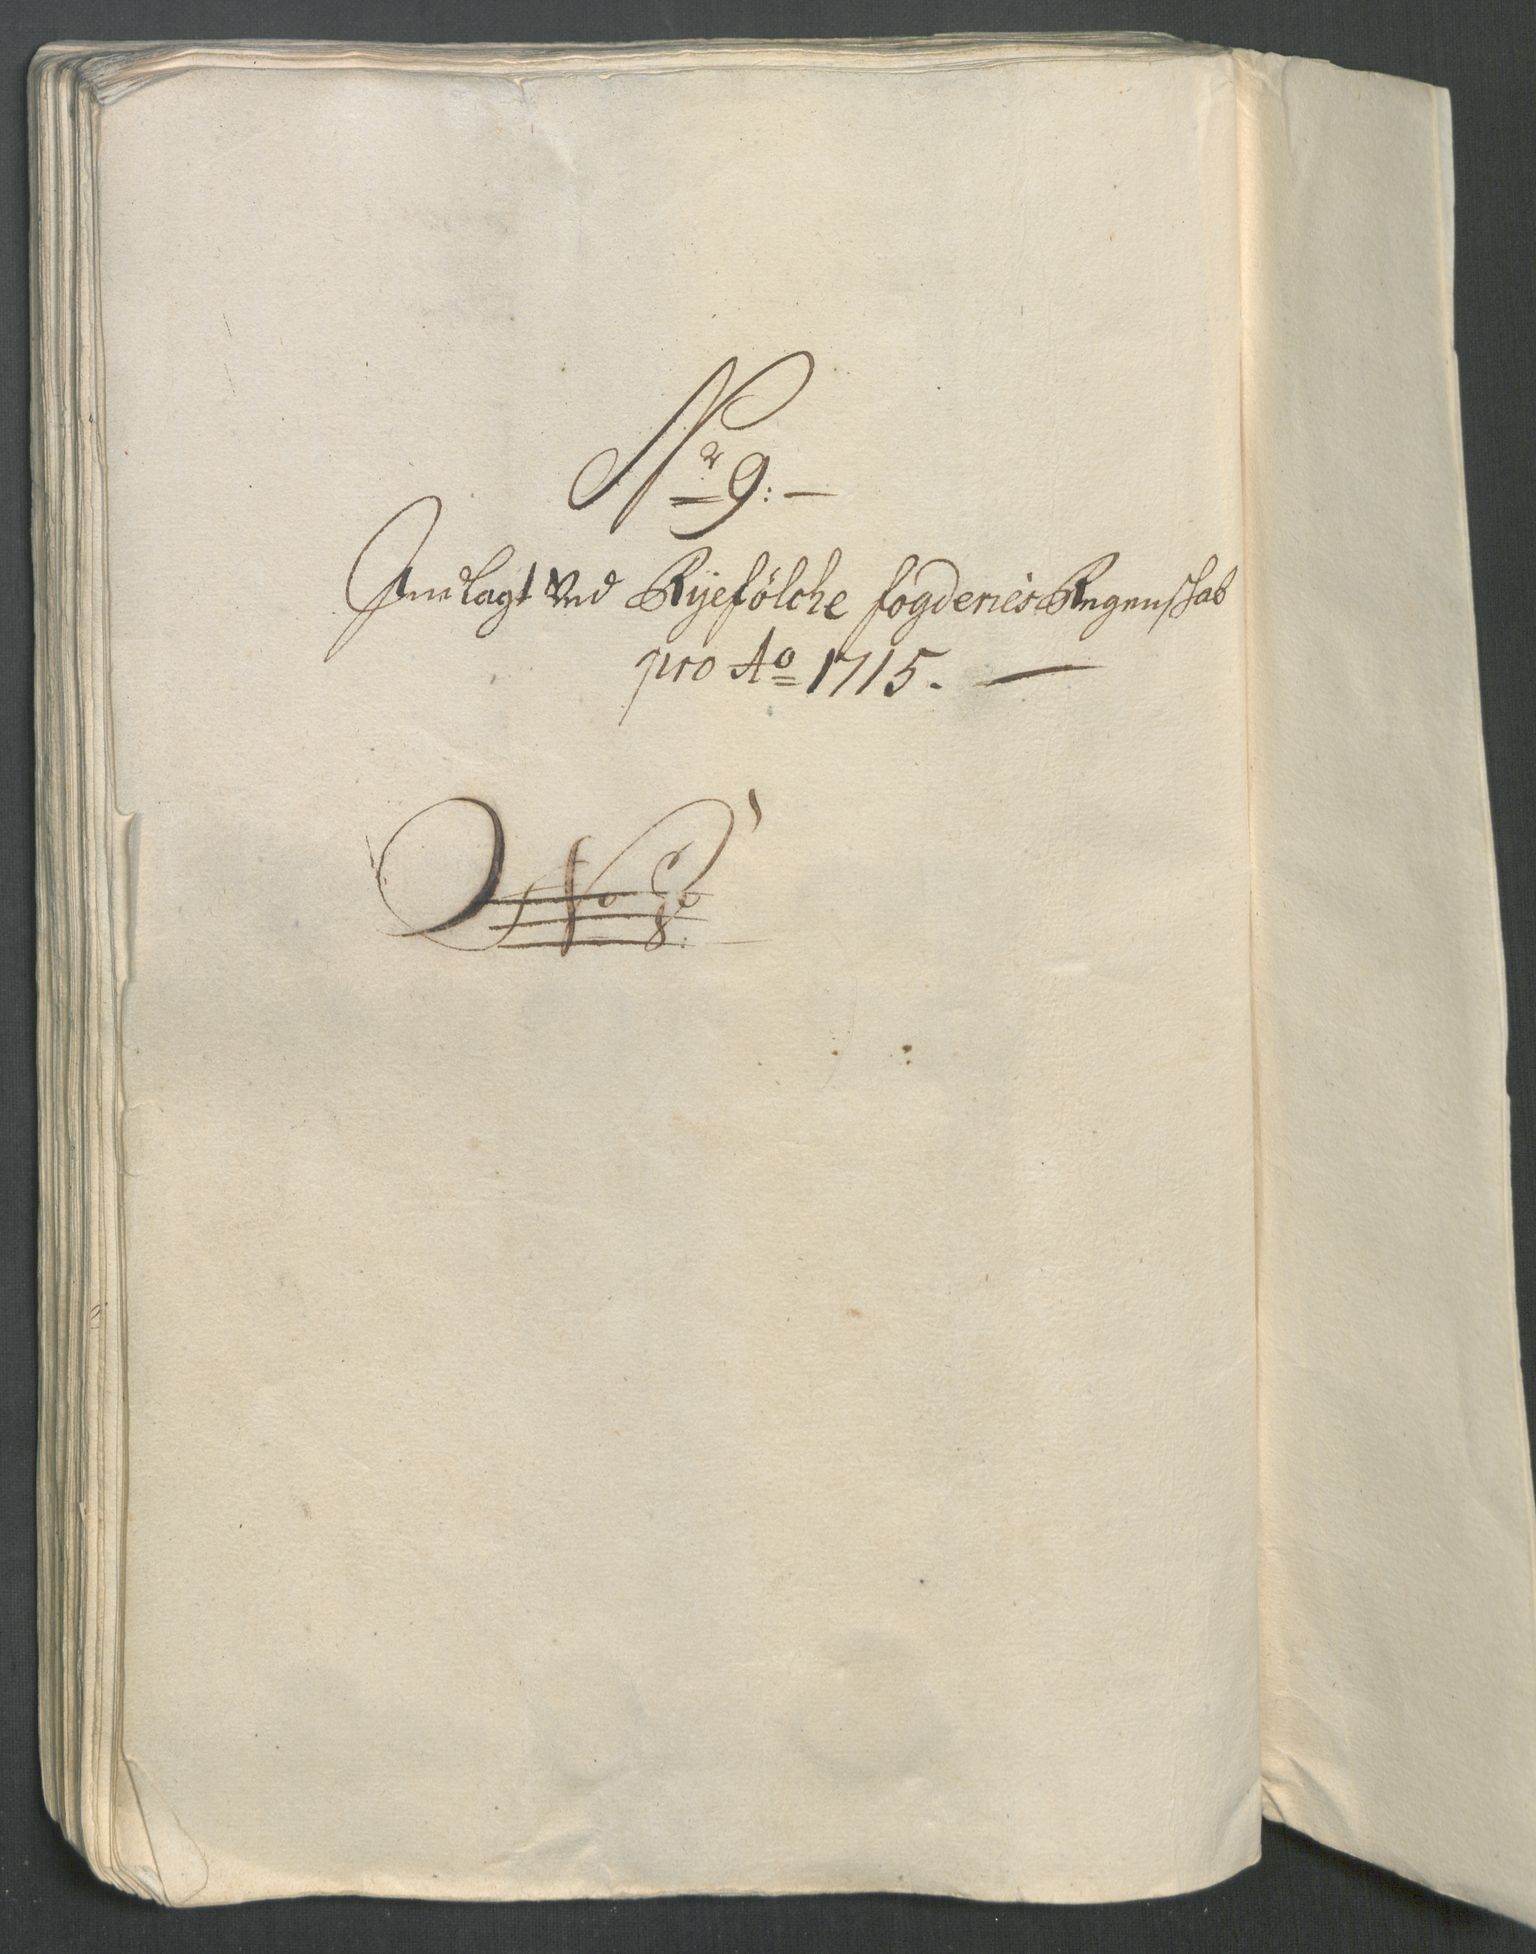 Nr 9:—
Indlagt Ved Ryefølche fogderies Regenskab
pro Ao 1715. —
No
8: